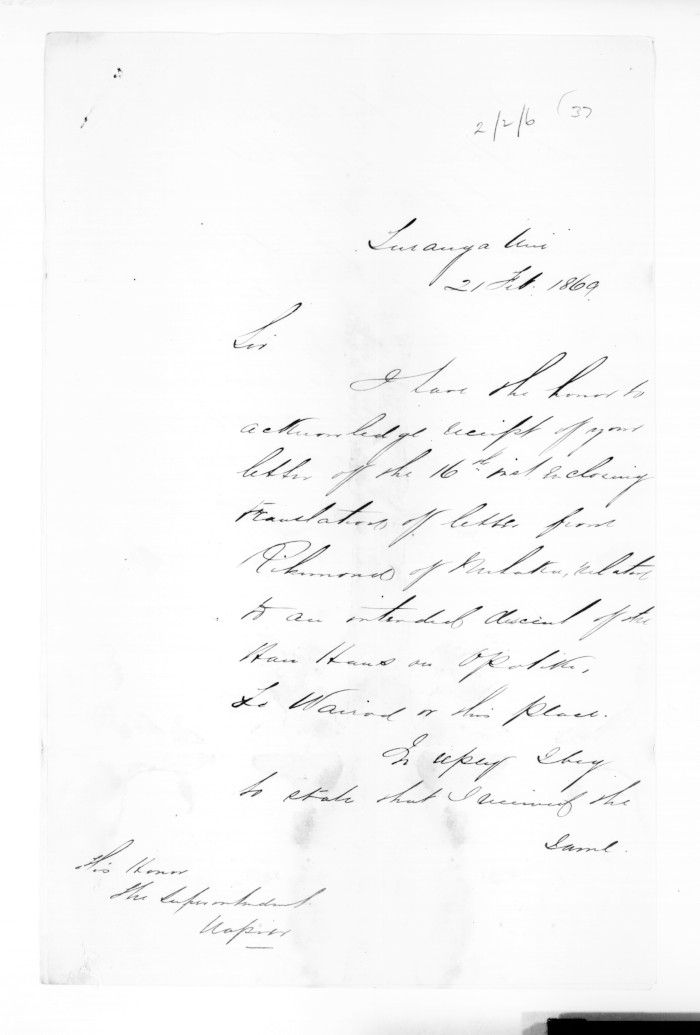 2/2/6 (37
Turanga Nui
21 Feb. 1869.
Sir
I have the honor to
acknowledge receipt of your
letter of the 16th inst enclosing
translation of letter from
Richmond of, relative
to an intended descent of the
Hau Haus on Opotiki,
Te Wairoa or this place.
In reply I beg
to state that I received the
same.
His Honor
The Superintendent
Napier